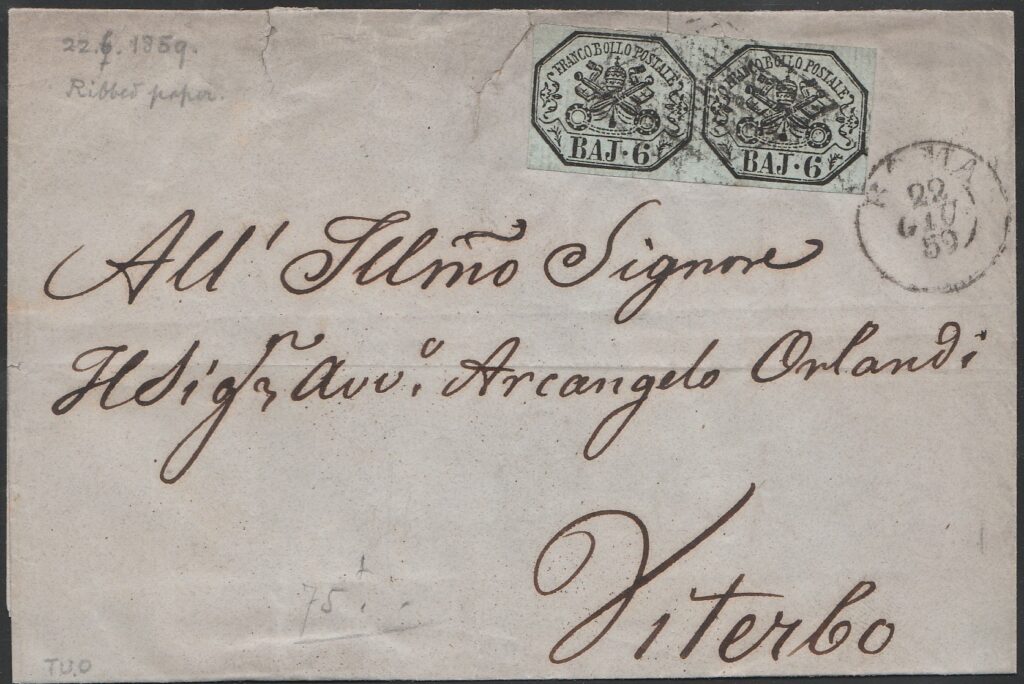 22.6.1859.
Ribbed paper.
FRANCO BOLLO POSTALE
BAJ·6
FRANCO BOLLO POSTALE
BAJ·6
ROMA
22
GIU
59
All' Illmo Signore
Il Sigr Avvo. Arcangelo Orlandi
Viterbo
75
TU.O